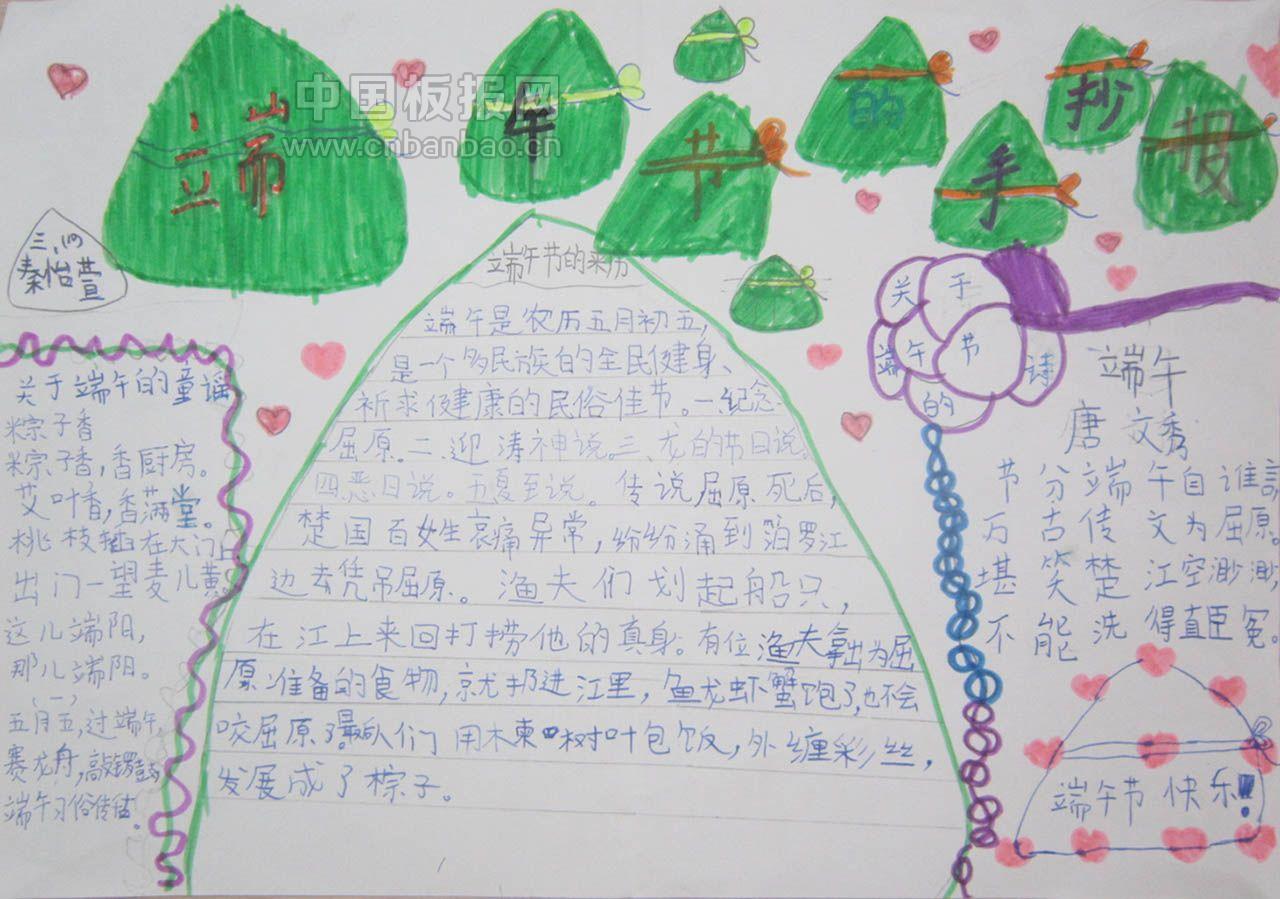 端午节的手抄报
中国板报网
www.cnbanbao.cn
三.(四)
秦怡萱
关于端午的童谣
粽子香
粽子香,香厨房。
艾叶香,香满堂。
桃枝插在大门上
出门一望麦儿黄。
这儿端阳,
那儿端阳。
(一)
五月五,过端午,
赛龙舟,敲锣鼓
端午习俗传估!
端午节的来历
端午是农历五月初五,
是一个多民族的全民健身、
祈求健康的民俗佳节。一.纪念
屈原.二、迎涛神说。三、龙的节日说。
四恶日说。五夏至说。传说屈原死后,
楚国百姓生哀痛异常,纷纷涌到泊罗江
边去凭吊屈原。渔夫们划起船只,
在江上来回打捞他的真身。有位渔夫拿出为屈
原准备的食物,就扔进江里,鱼龙虾蟹饱了,也不会
咬屈原了。最后人们用木柬树叶包饭,外缠彩丝,
发展成了棕子。
关于端午节的诗
端午
唐 文秀
节分端午自谁言
万古传文为屈原。
堪笑楚江空渺渺
不能洗得直臣冤。
端午节快乐!!!